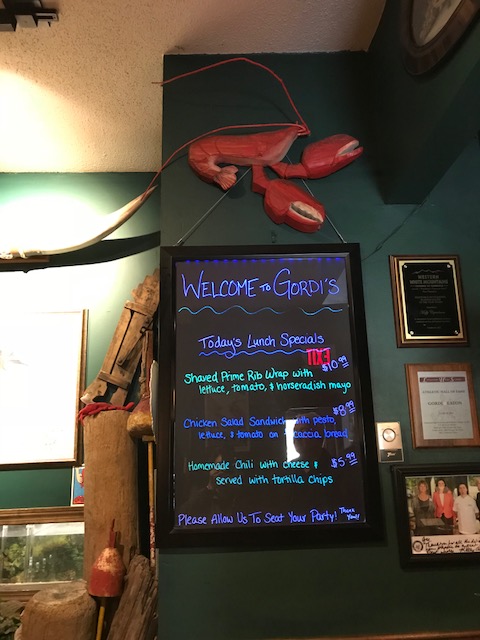 WELCOME TO GORDI'S
Today's Lunch Specials
Shaved Prime Rib Wrap with $10.99
lettuce, tomato, & horseradish mayo
Chicken Salad Sandwich with pesto, $8.99
lettuce, & tomato on focaccia bread
Homemade Chili with cheese & $5.99
served with tortilla chips
Please Allow Us To Seat Your Party! Thank You!
WESTERN
WHITE MOUNTAINS